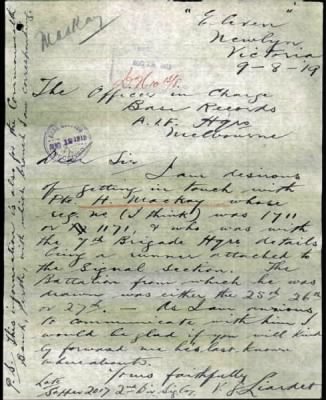 Mackay
"E leven"
Newlyn
Victoria
9-8-19
The Officer in Charge
Base Records
A.I.F. Hqrs
Melbourne
Dear Sir
I am desirous
of getting in touch with
Pte H. Mackay whose
reg. no (I think) was 1711
or 1171, & who was with
the 7th Brigade Hqrs details
being a runner attached to
the Signal section. The
Battalion from which he was
drawn was either the 25th 26th
or 27th. — As I am anxious
to communicate with him I
would be glad if you will kind
ly forward me his last known
whereabouts.
Yours faithfully
Late
Sapper 2017 2nd Div Sig Coy.
P.S. This information is also for the Commonwealth
Bank, with which branch I am